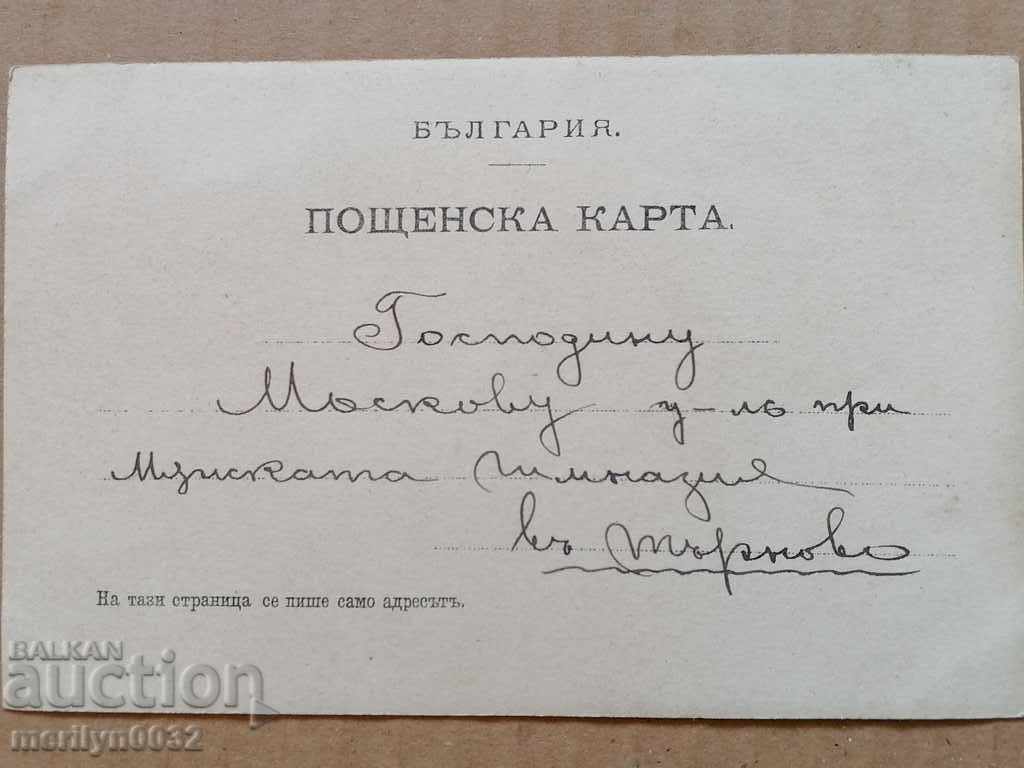 БЪЛГАРИЯ.
ПОЩЕНСКА КАРТА.
Господину
Москову у-лъ при
Мъжката гимназия
въ Търново
На тази страница се пише само адресътъ.
BALKAN
auction
merilyn0032